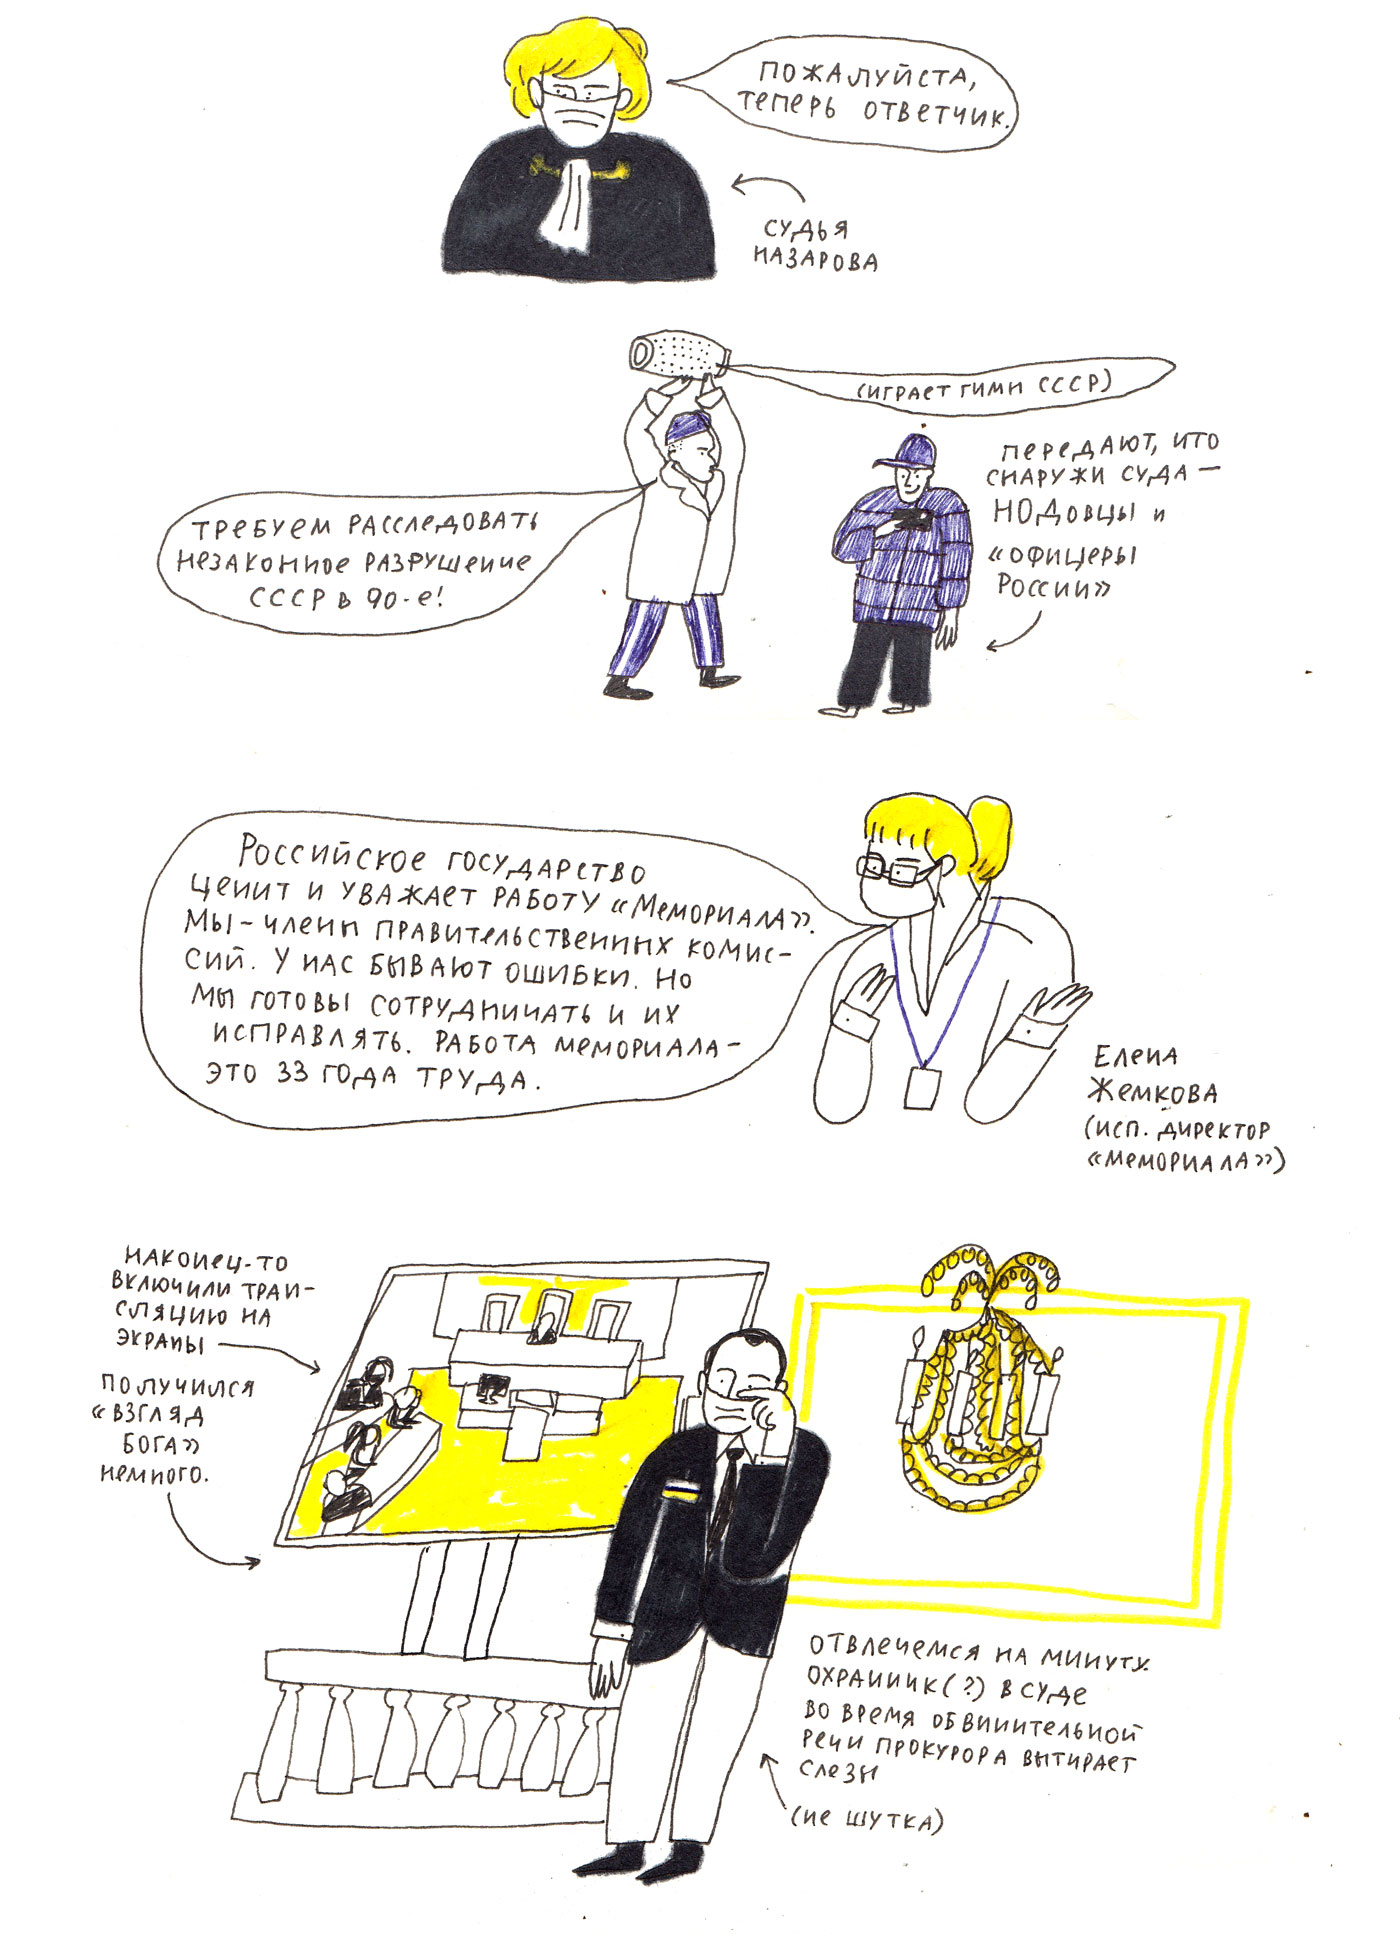 ПОЖАЛУЙСТА,
ТЕПЕРЬ ОТВЕТЧИК.
СУДЬЯ
НАЗАРОВА
(ИГРАЕТ ГИМН СССР)
ПЕРЕДАЮТ, ЧТО
СНАРУЖИ СУДА —
НОДОВЦЫ И
«ОФИЦЕРЫ
РОССИИ»
ТРЕБУЕМ РАССЛЕДОВАТЬ
НЕЗАКОННОЕ РАЗРУШЕНИЕ
СССР В 90-Е!
РОССИЙСКОЕ ГОСУДАРСТВО
ЦЕНИТ И УВАЖАЕТ РАБОТУ «МЕМОРИАЛА».
МЫ – ЧЛЕНЫ ПРАВИТЕЛЬСТВЕННЫХ КОМИС-
СИЙ. У НАС БЫВАЮТ ОШИБКИ. НО
МЫ ГОТОВЫ СОТРУДНИЧАТЬ И ИХ
ИСПРАВЛЯТЬ. РАБОТА МЕМОРИАЛА –
ЭТО 33 ГОДА ТРУДА.
ЕЛЕНА
ЖЕМКОВА
(ИСП. ДИРЕКТОР
«МЕМОРИАЛА»)
НАКОНЕЦ-ТО
ВКЛЮЧИЛИ ТРАН-
СЛЯЦИЮ НА
ЭКРАНЫ
ПОЛУЧИЛСЯ
«ВЗГЛЯД
БОГА»
НЕМНОГО.
ОТВЛЕЧЕМСЯ НА МИНУТУ.
ОХРАННИК(?) В СУДЕ
ВО ВРЕМЯ ОБВИНИТЕЛЬНОЙ
РЕЧИ ПРОКУРОРА ВЫТИРАЕТ
СЛЕЗЫ
(НЕ ШУТКА)